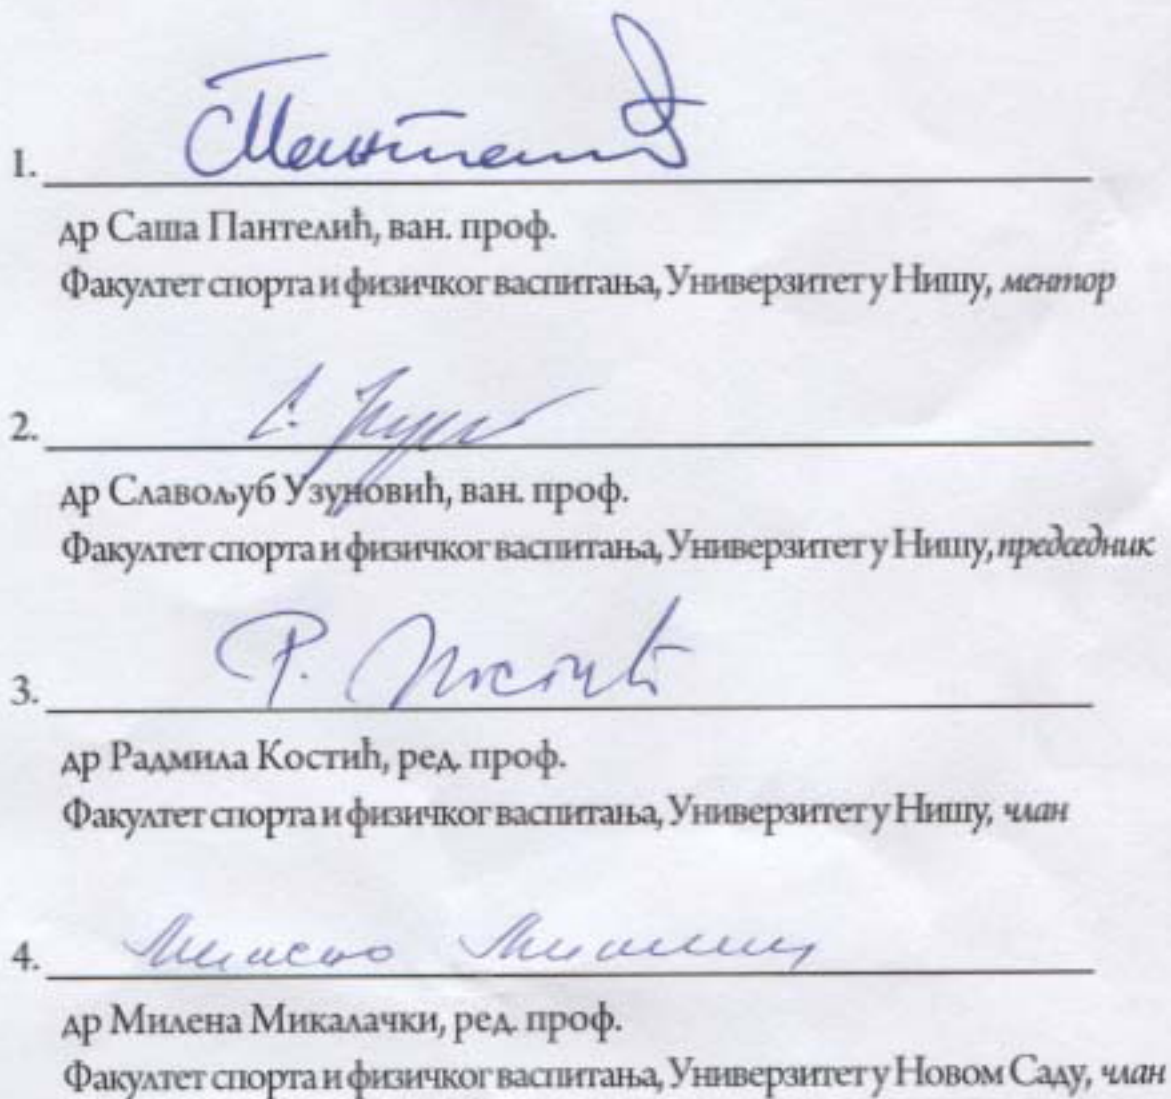 1.
др Саша Пантелић, ван. проф.
Факултет спорта и физичког васпитања, Универзитет у Нишу, ментор
2.
др Славољуб Узуновић, ван. проф.
Факултет спорта и физичког васпитања, Универзитет у Нишу, председник
3. Р. Костић
др Радмила Костић, ред. проф.
Факултет спорта и физичког васпитања, Универзитет у Нишу, члан
4.
др Милена Микалачки, ред. проф.
Факултет спорта и физичког васпитања, Универзитет у Новом Саду, члан